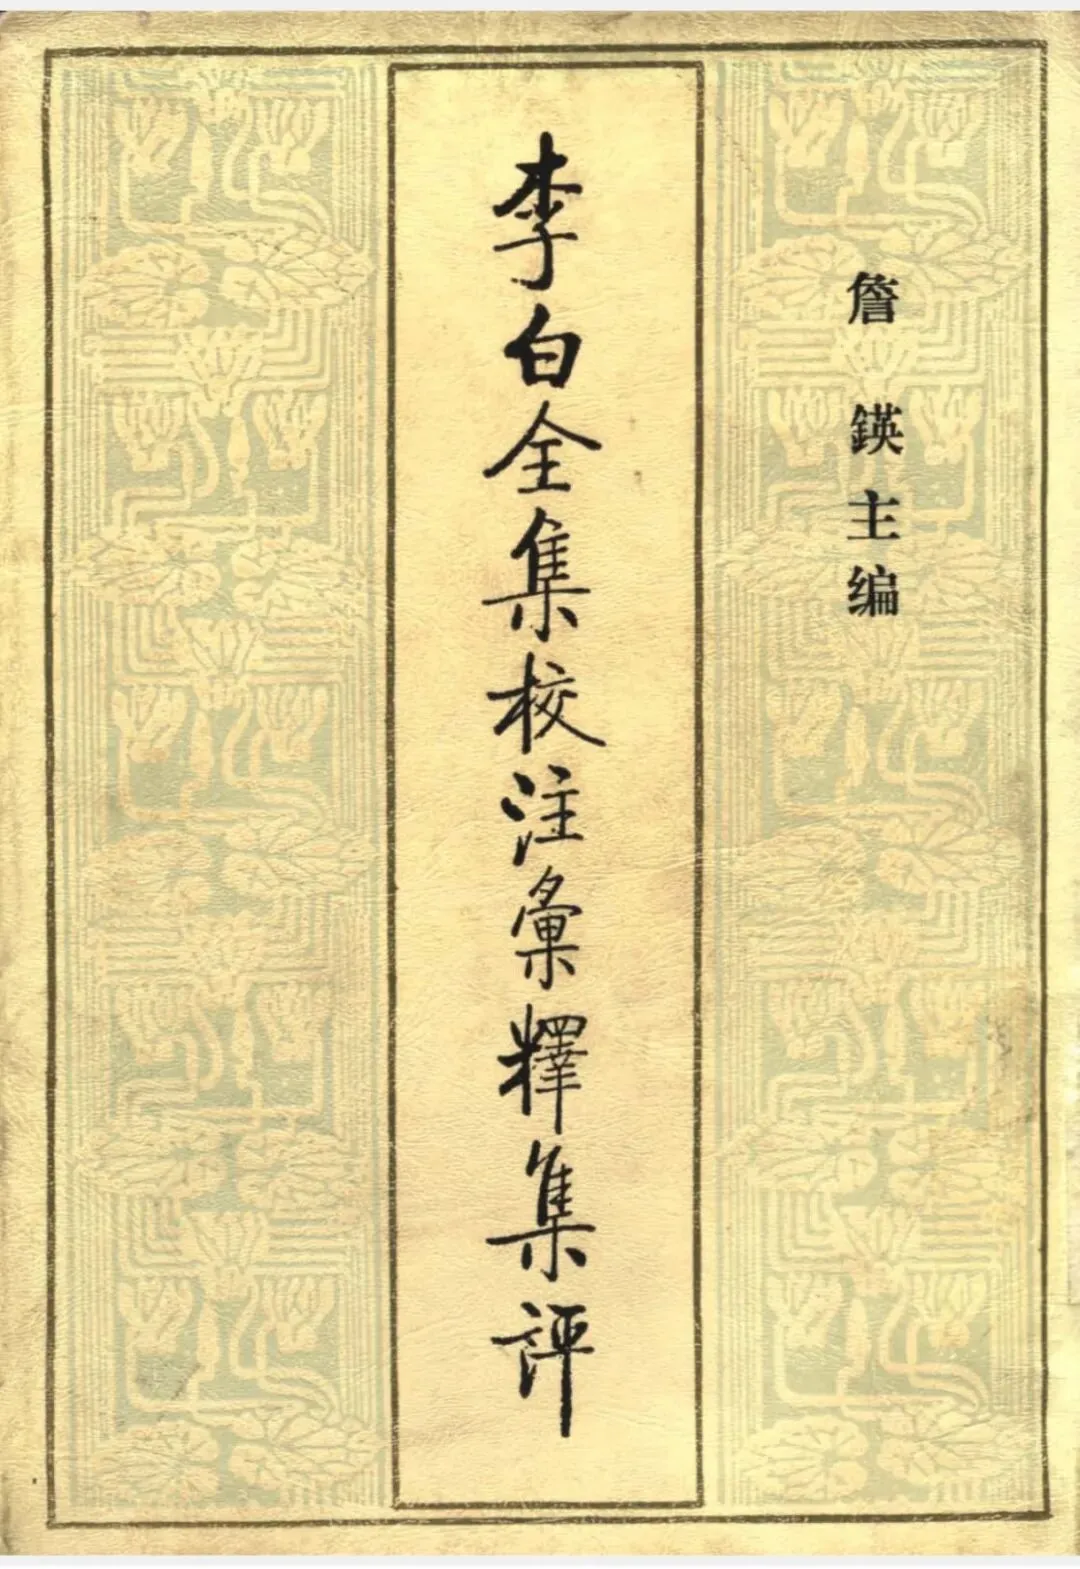 詹鍈主编
李白全集校注彙釋集評